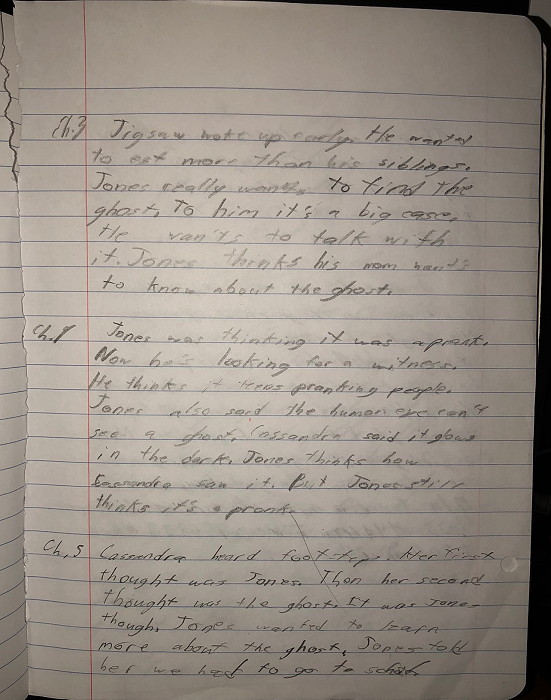 Ch.3 Jigsaw woke up early. He wanted
to eat more than his siblings.
Jones really wants to find the
ghost. To him it's a big case.
He wants to talk with
it. Jones thinks his mom wants
to know about the ghost.
Ch. Jones was thinking it was a prank.
Now he's looking for a witness.
He thinks it pranking people.
Jones also said the human eye can't
see a ghost. Cassandra said it glows
in the dark. Jones thinks how
Cassandra saw it. But Jones still
thinks it's a prank.
Ch. 5 Cassandra heard footstep. Her first
thought was Jones. Then her second
thought was the ghost. It was Jones
though. Jones wanted to learn
more about the ghost. Jones told
her we had to go to